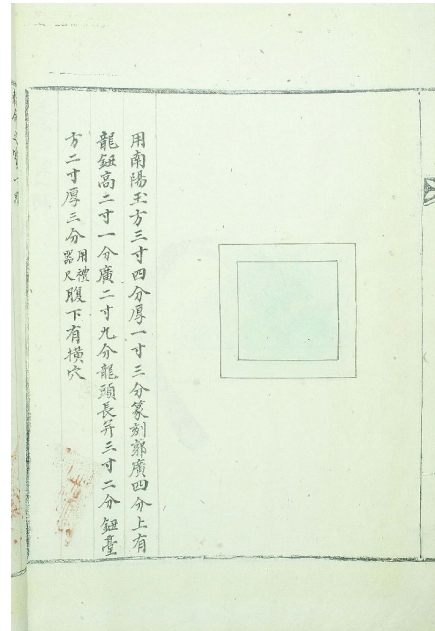 用南陽玉方三寸四分厚一寸三分篆刻郭廣四分上有
龍鈕高二寸一分廣二寸九分龍頭長并三寸二分鈕臺
方二寸厚三分用禮器尺腹下有横穴